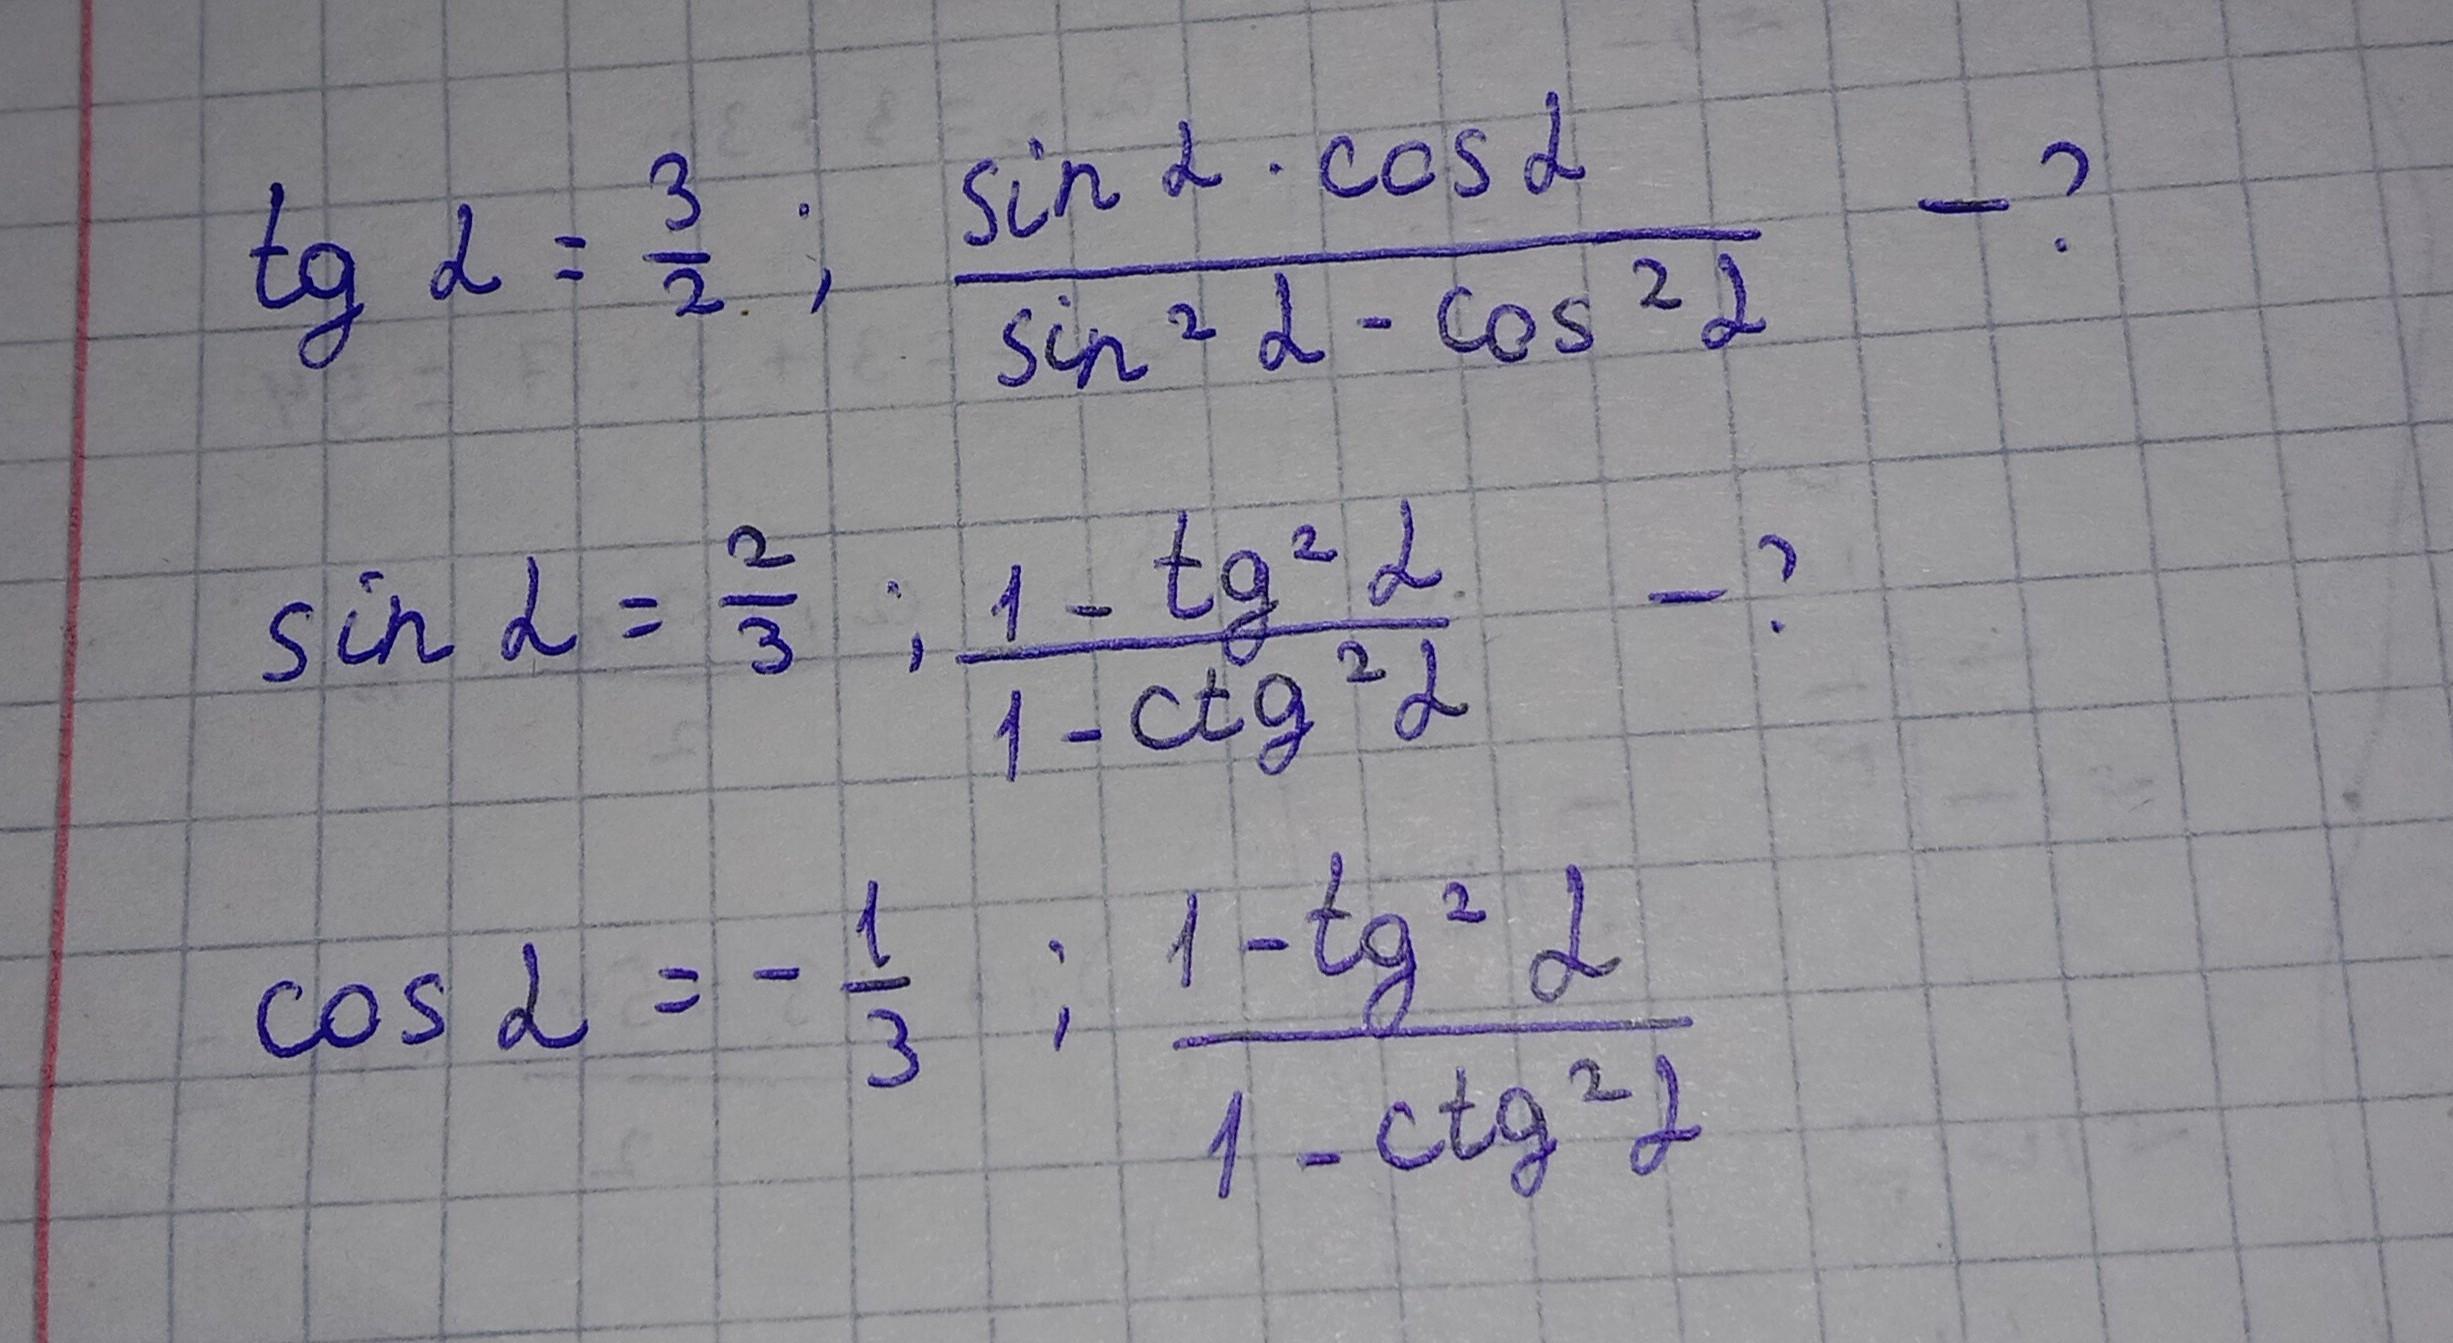 tg α = 3/2 ; (sin α · cos α)/(sin² α - cos² α) - ?
sin α = 2/3 ; (1 - tg² α)/(1 - ctg² α) - ?
cos α = - 1/3 ; (1 - tg² α)/(1 - ctg² α)